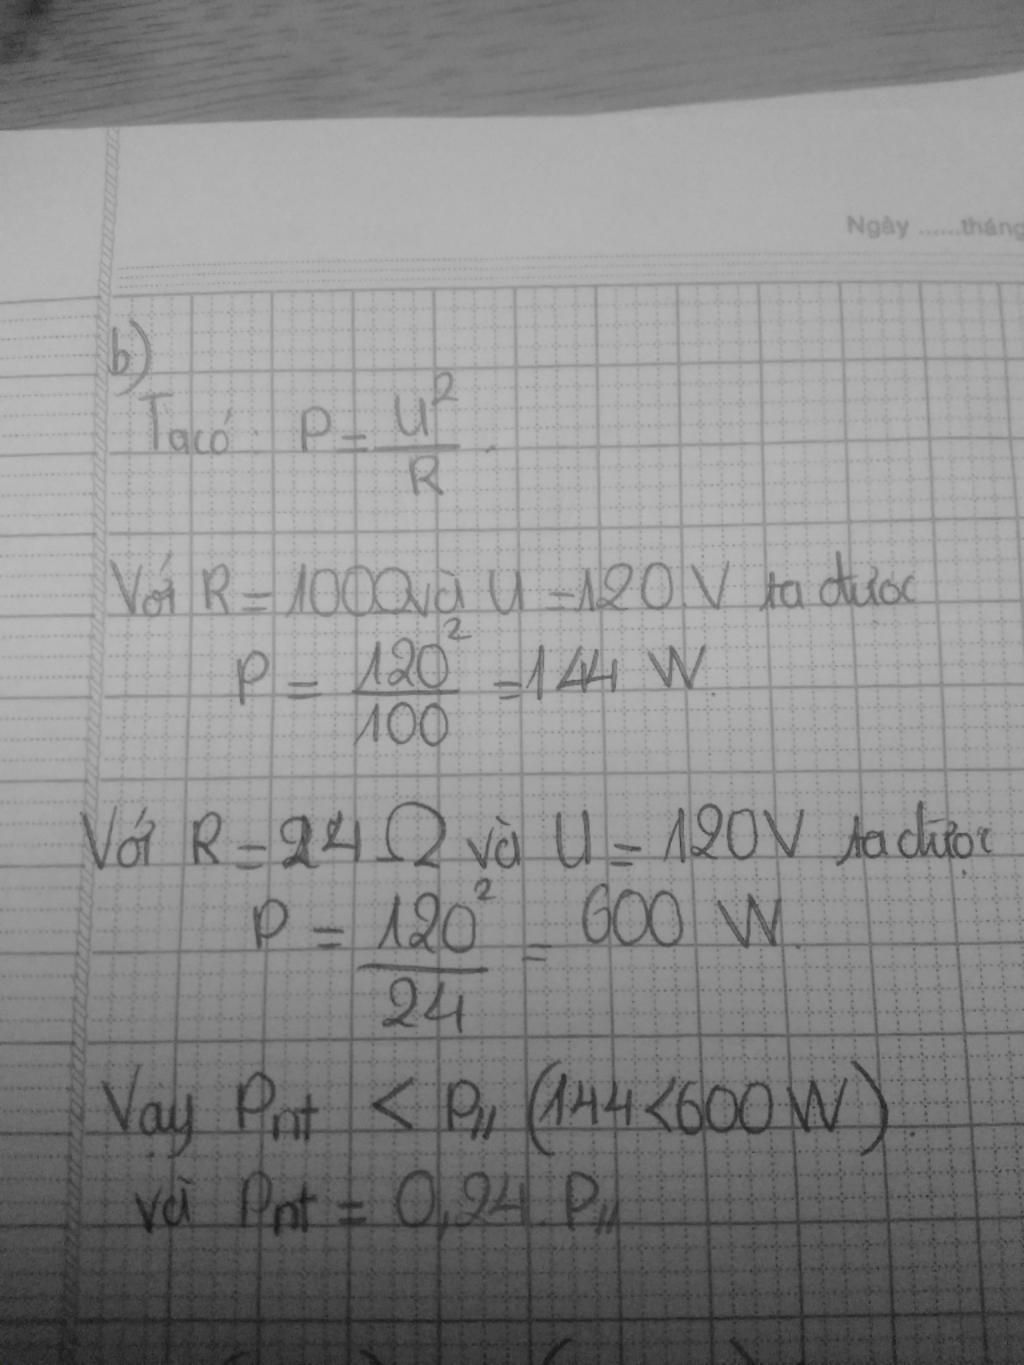 Ngày ......tháng
b)
Ta có: P = U²/R.
Với R = 100Ω và U = 120 V ta được
P = 120²/100 = 144 W.
Với R = 24 Ω và U = 120V ta được
P = 120²/24 = 600 W.
Vậy Pnt < P// (144<600 W).
và Pnt = 0,24 P//